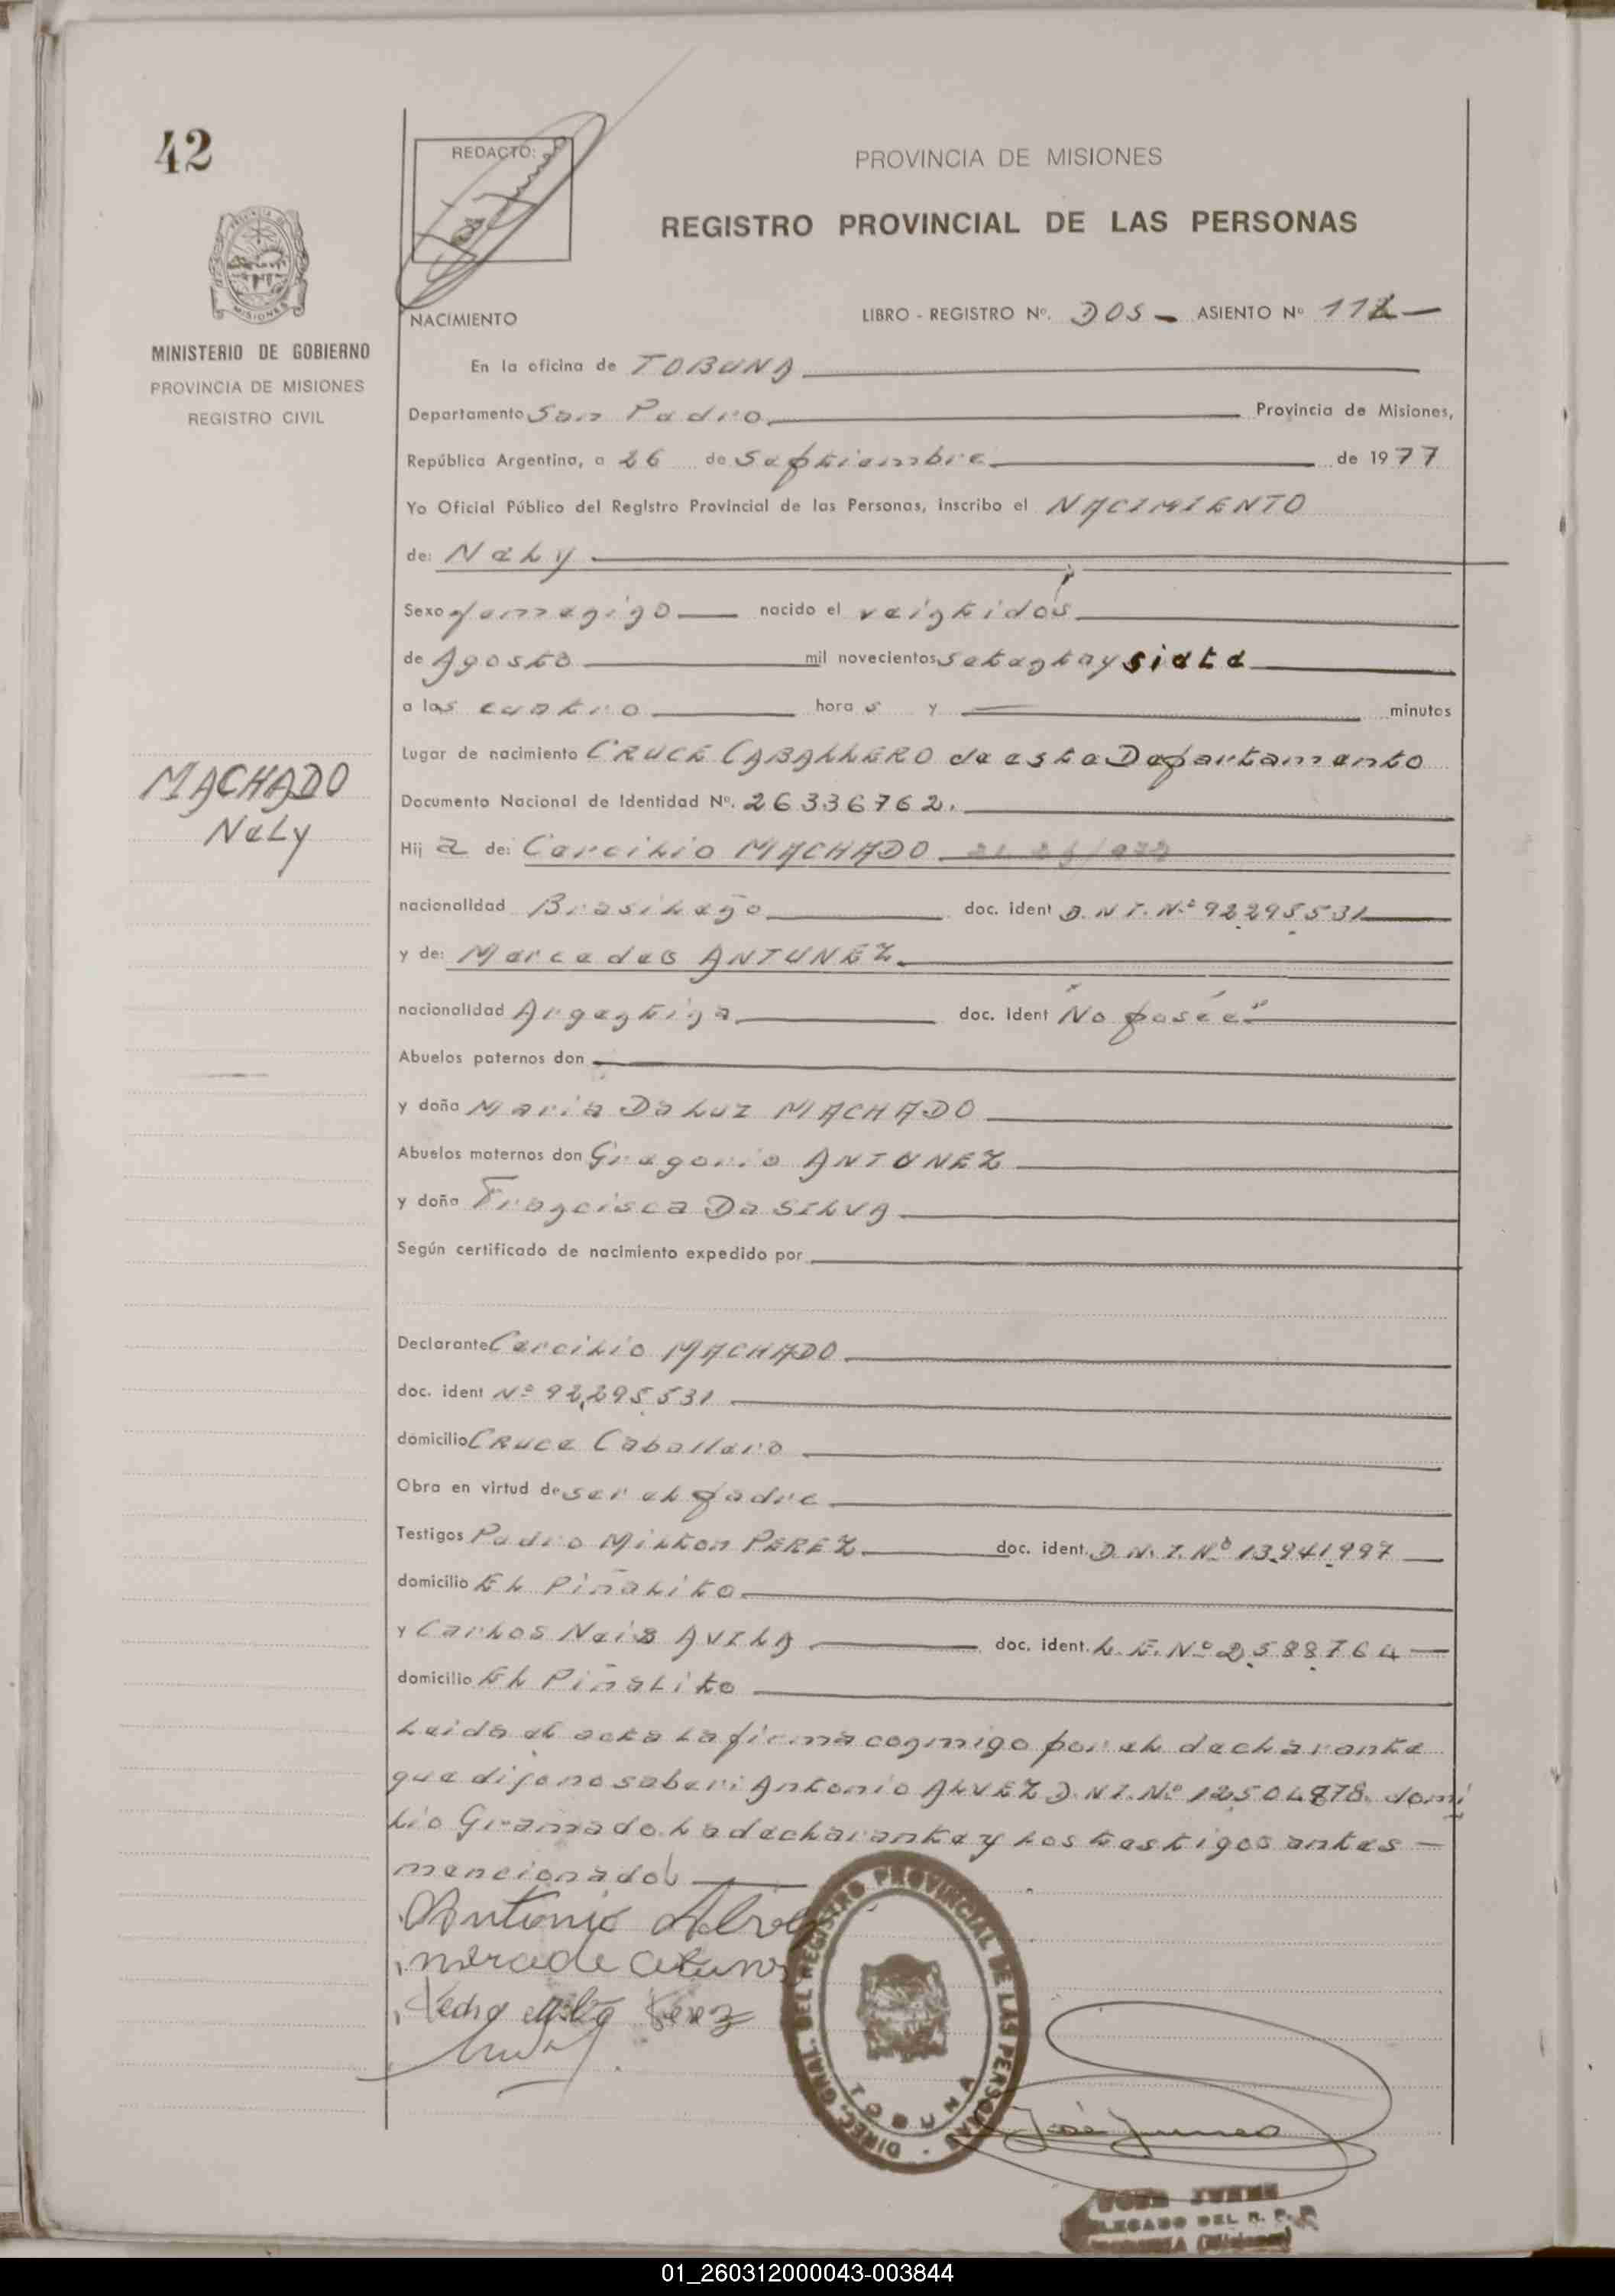 42
REDACTO:
PROVINCIA DE MISIONES
REGISTRO PROVINCIAL DE LAS PERSONAS
MINISTERIO DE GOBIERNO
PROVINCIA DE MISIONES
REGISTRO CIVIL
NACIMIENTO
LIBRO - REGISTRO Nº. DOS - ASIENTO Nº 112 —
En la oficina de TOBUNA
Departamento San Pedro Provincia de Misiones,
República Argentina, a 26 de Septiembre de 1977
Yo Oficial Público del Registro Provincial de las Personas, inscribo el NACIMIENTO
de: Nely
Sexo femenino nacido el veintidós
de Agosto mil novecientos setentay siete
a las cuatro hora s y — minutos
Lugar de nacimiento CRUCE CABALLERO de este Departamento
MACHADO
Nely
Documento Nacional de Identidad Nº. 26336762.
Hij a de: Cercilio MACHADO
nacionalidad Brasileño doc. ident D.N.I. Nº 92.295.531
y de: Mercedes ANTUNEZ
nacionalidad Argentina doc. ident "No posée"
Abuelos paternos don —
y doña Maria Da Luz MACHADO
Abuelos maternos don Gregorio ANTUNEZ
y doña Francisca Da SILVA
Según certificado de nacimiento expedido por
Declarante Cercilio MACHADO
doc. ident Nº 92.295.531
domicilio Cruce Caballero
Obra en virtud de ser el padre
Testigos Pedro Milton PEREZ doc. ident. D.N.I. Nº 13.941.997
domicilio EL Piñalito
y Carlos Neis AVILA doc. ident. L.E. Nº 2.588.764
domicilio EL Piñalito
Leida el acta la firma conmigo por el declarante
que dijo no saber: Antonio ALVEZ D.N.I. Nº 12504878. domi
lio Gramado. La declarante y los testigos antes —
mencionados
Antonio Alvez
mercede
Pedro Perez
DIREC. GRAL. DEL REGISTRO PROVINCIAL DE LAS PERSONAS
TOBUNA
José
01_260312000043-003844